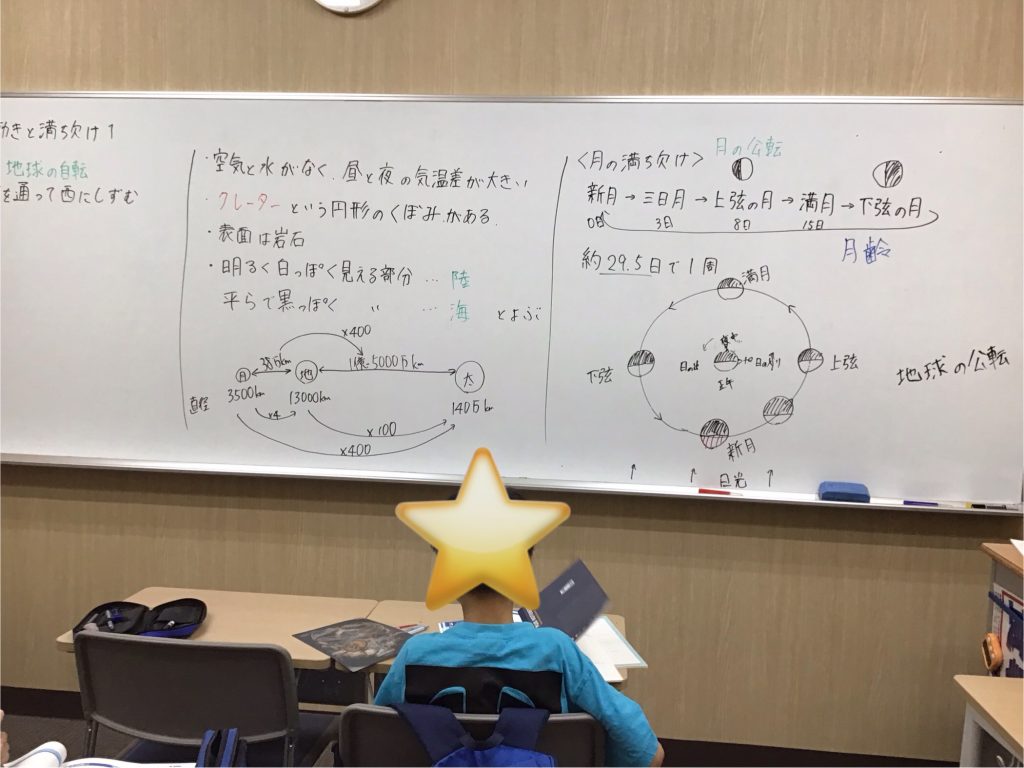 動きと満ち欠け1
地球の自転
を通って西にしずむ
・空気と水がなく、昼と夜の気温差が大きい
・クレーターという円形のくぼみがある。
・表面は岩石
・明るく白っぽく見える部分 … 陸
平らで黒っぽく 〃 … 海 とよぶ
×400
38万km
1億5000万km
月
地
太
直径
3500km
13000km
140万km
×4
×100
×400
<月の満ち欠け>
月の公転
新月→三日月→上弦の月→満月→下弦の月
0日
3日
8日
15日
月齢
約29.5日で1周
満月
下弦
上弦
正午
新月
日光
地球の公転